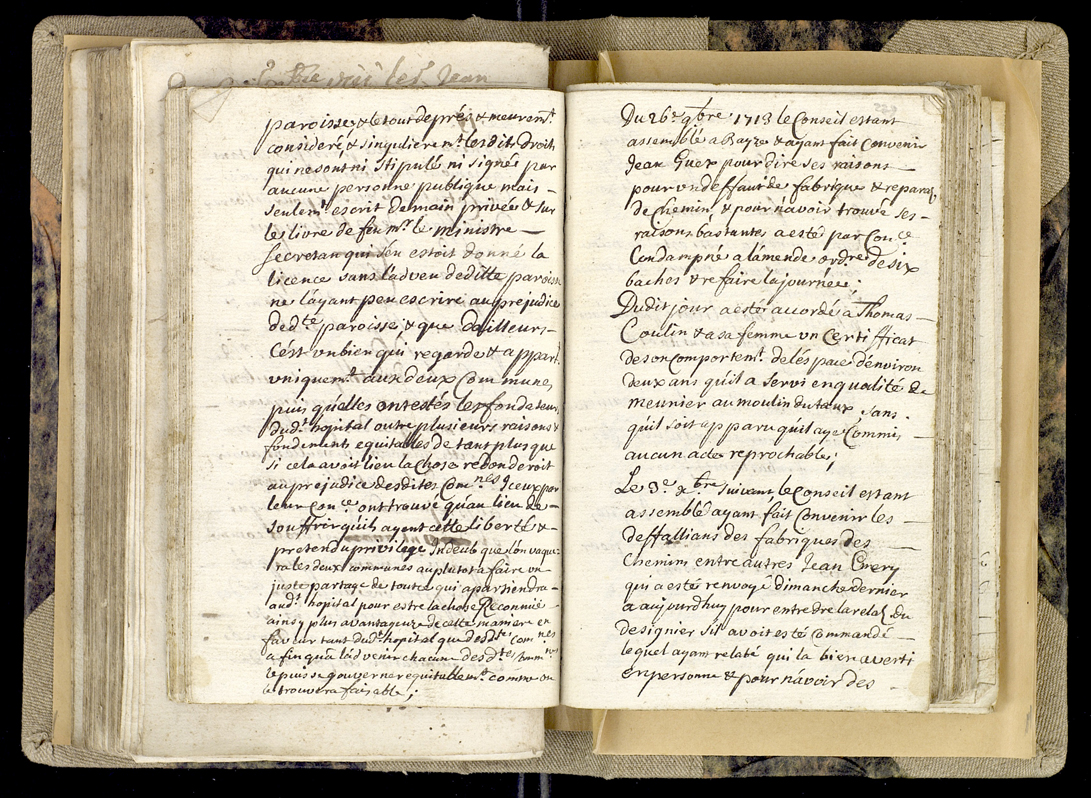 paroisse, & le tout de près & meurem.t
consideré, & singuliere m.t lesdits droits
qui ne sont ni stipulé ni signés par
aucune personne publique mais –
seulem.t escrit de main privée & sur
les livre de feu m.r le ministre –
Secretan qui s'en estoit donné la
licence sans l'adveu de ditte paroisse
ne l'ayant peu escrire au prejudice
de d.te paroisse, & que d'ailleurs –
C'est un bien qui regarde & appart.t
uniquem.t aux deux Communes
puis qu'elles ont estés les fondateurs
dud.t hopital outre plusieurs raisons &
fondements equitables de tant plus que
si cela avoit lieu la chose redonderoit
au prejudice desdites Com.nes Iceux par
leur con.ce ont trouvé qu'au lieu de –
souffrir qu'ils ayent cette liberté &
pretendu privilege Indeub que l'on vaque-
ra les deux communes au plutot a faire un
juste partage de tout ce qui apartiendra –
aud.t hopital pour estre la chose Reconnue –
ainsy plus avantageuze de cette maniere en
faveur tant dud.t hopital que desd.tes Com.nes
a fin qu'a l'advenir chacune desd.tes Comm.nes
le puisse gouverner equitablem.t comme on
le trouvera faisable;
Du 26.e 9bre 1713 le Conseil estant
assemblé a Rayze & ayant fait convenir
Jean Guex pour dire ses raisons
pour un deffaut de fabrique & reparaõ
de Chemin, & pour n'avoir trouvé ses –
raisons bastantes a esté par Con.ce
Condampné a l'amende ord.re de six
baches & refaire la journée;
Dudit jour a esté accordé a Thomas –
Coulin & a sa femme un Certifficat
de son comportem.t de l'espace d'environ
deux ans qu'il a servi en qualité de
meunier au moulin du taux sans
qu'il soit apparu qu'il aye Commis –
aucun acte reprochable;
Le 3.e Xbre suivant le Conseil estant
assemblé ayant fait Convenir les –
deffallians des fabriques des –
Chemins entre autres Jean Emery
qui a esté renvoyé dimanche dernier
a aujourd'huy pour entendre la relaõ du
designier s'il avoit esté commandé –
lequel ayant relaté qui la bien averti
en personne & pour n'avoir des –